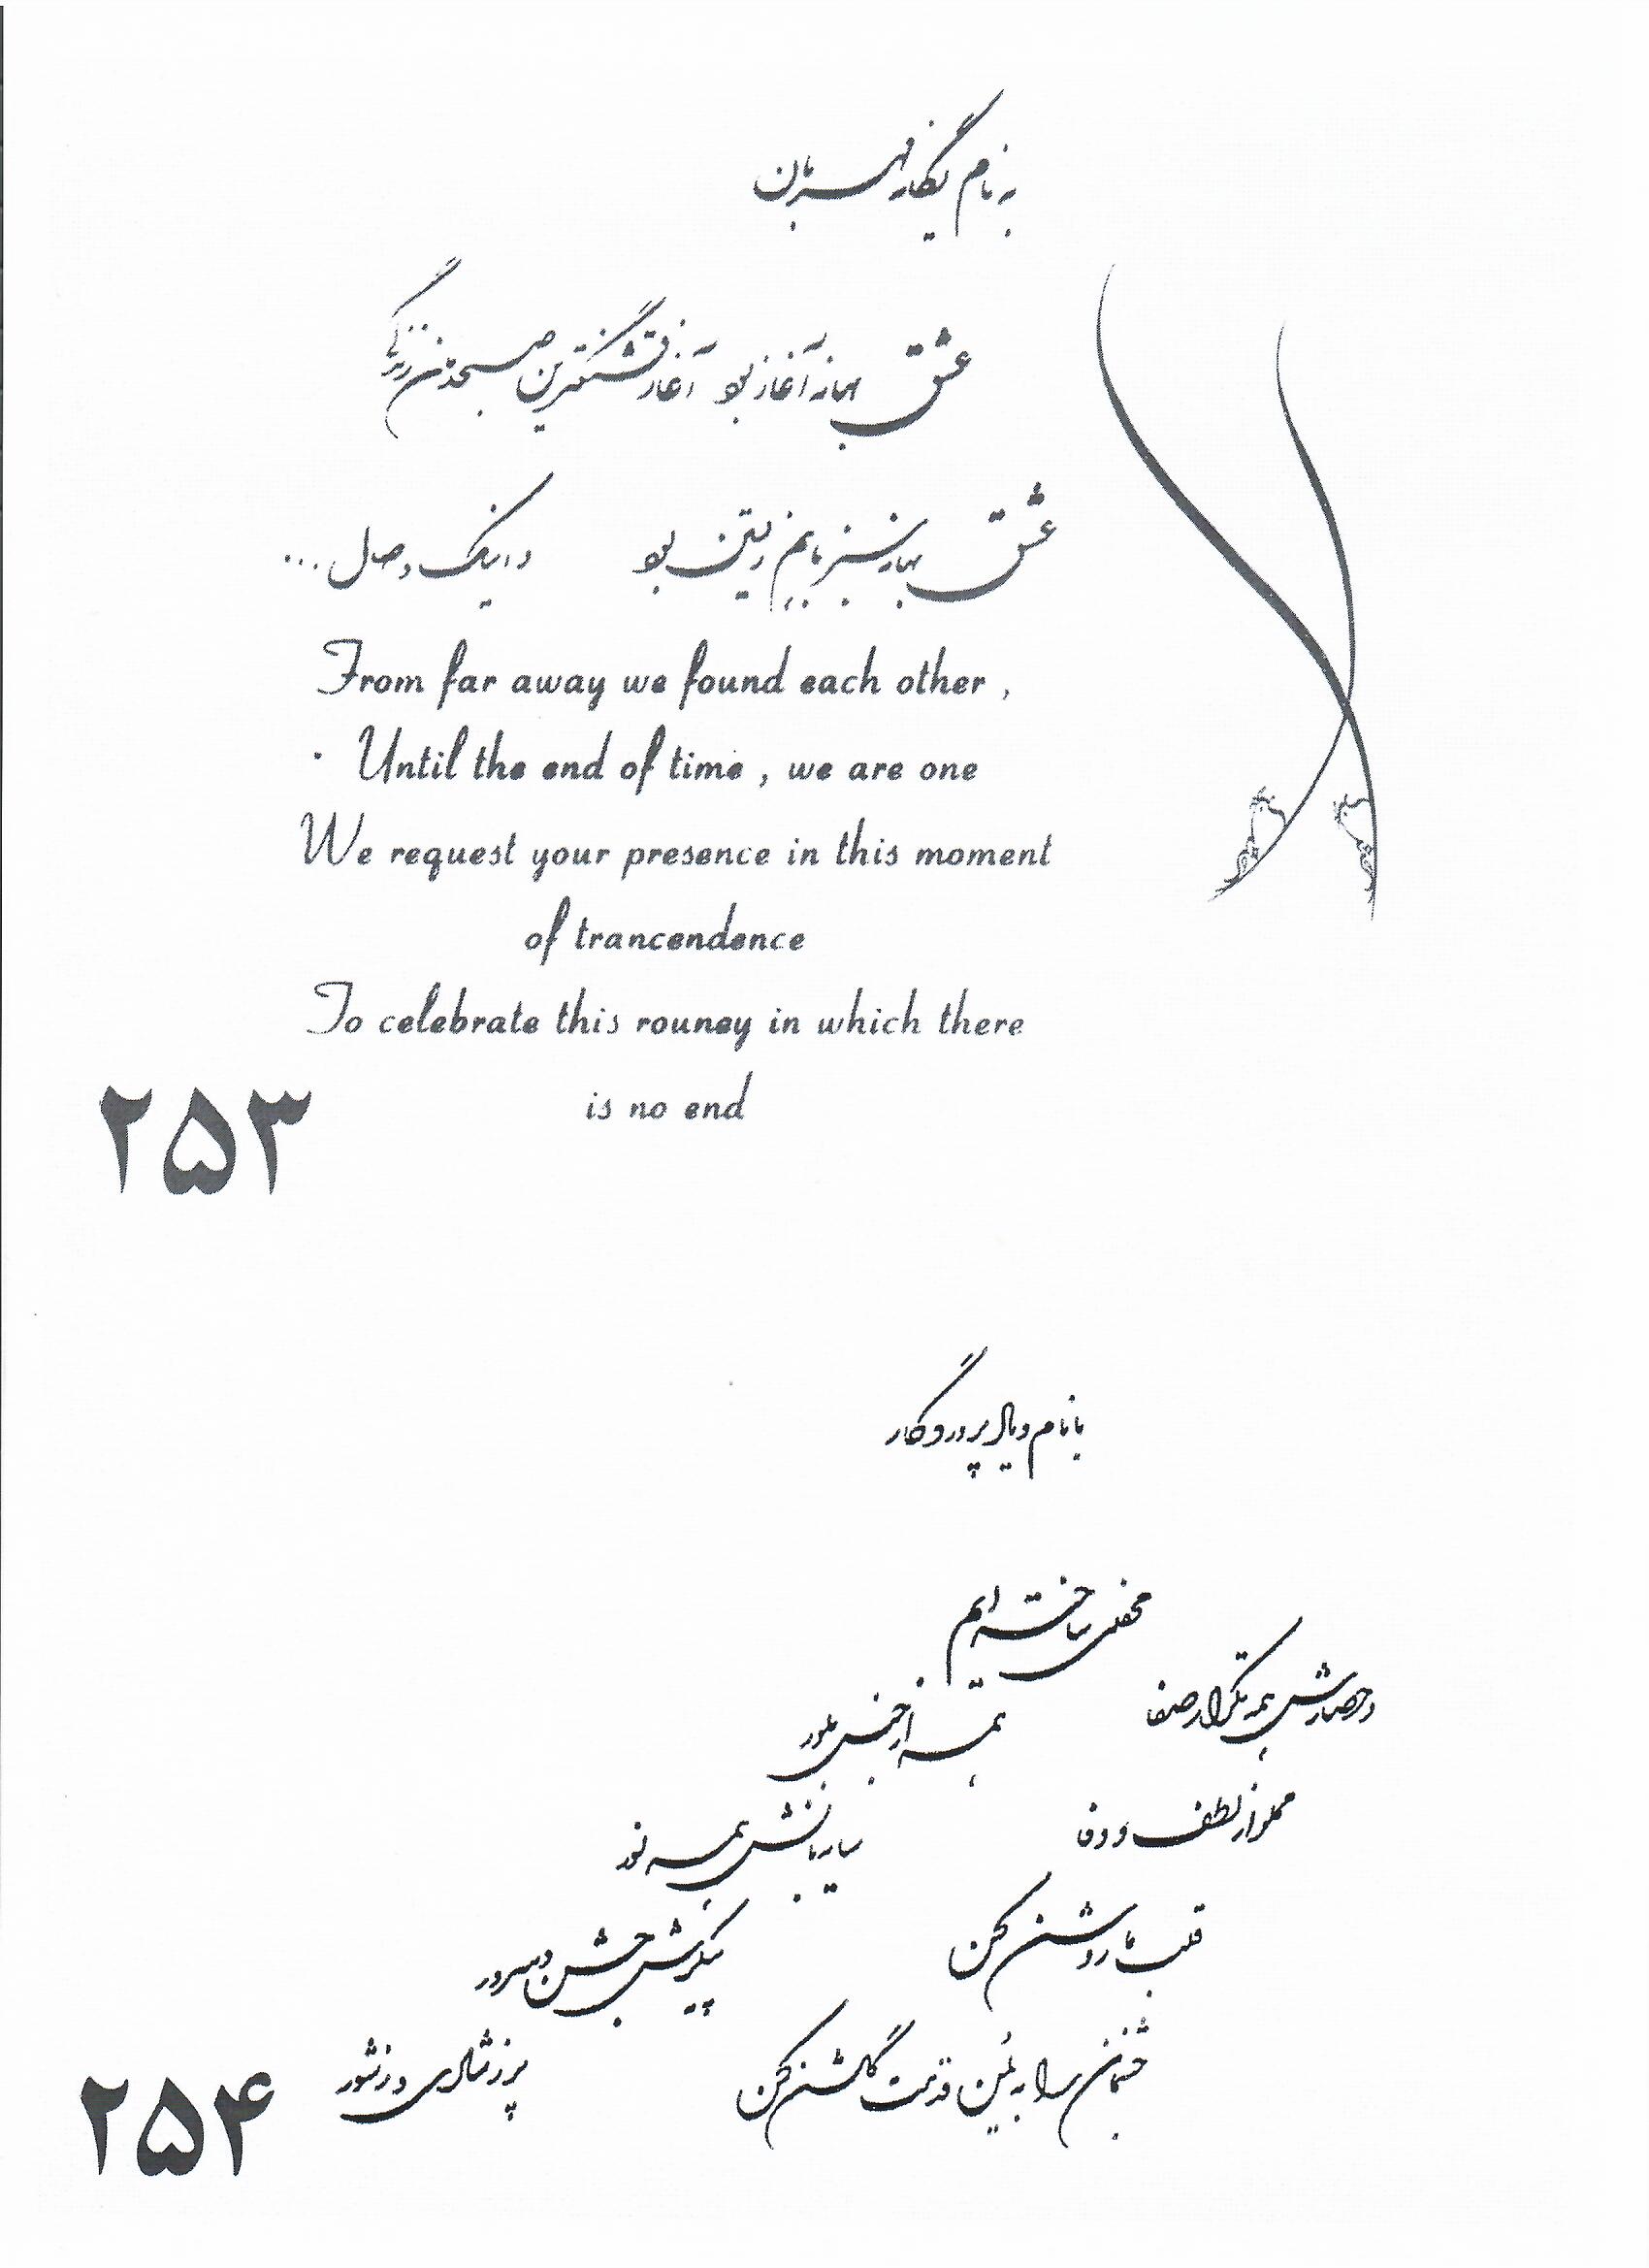 به نام یگانه مهربان
عشق بهانه آغاز بود آغاز قشنگترین صبحدمان زندگی
عشق بهار سبز با هم زیستن بود و اینک وصال ...
From far away we found each other ,
Until the end of time , we are one
We request your presence in this moment
of trancendence
To celebrate this rouney in which there
is no end
۲۵۳
با نام و یاد پروردگار
محفلی ساخته ایم
در حصارش همه تکرار صفا
همه از جنس بلور
مملو از لطف و وفا
سایه بانش همه نور
قلب ما روشن کن
پیکرش جشن و سرور
جشنمان را به یمن قدمت گلشن کن
پر ز شادی و ز شور
۲۵۴